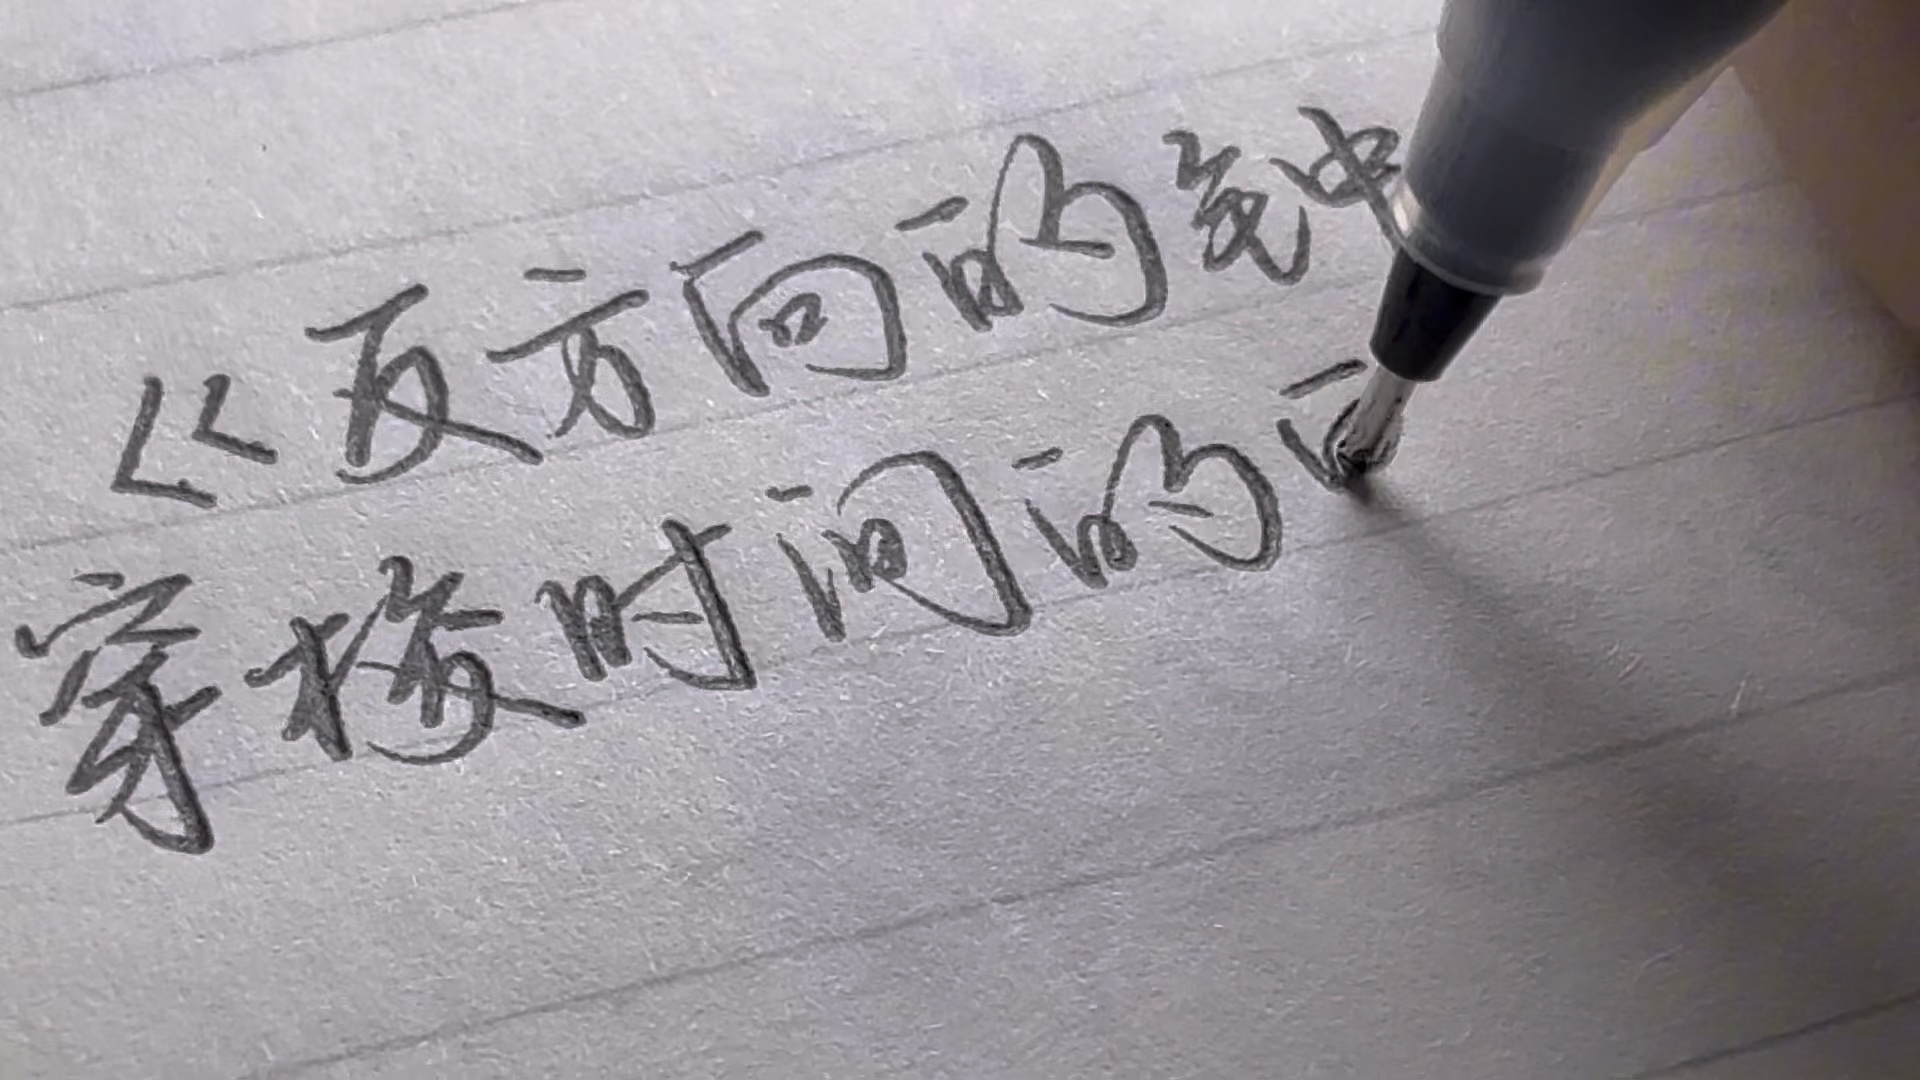 《反方向的钟
穿梭时间的